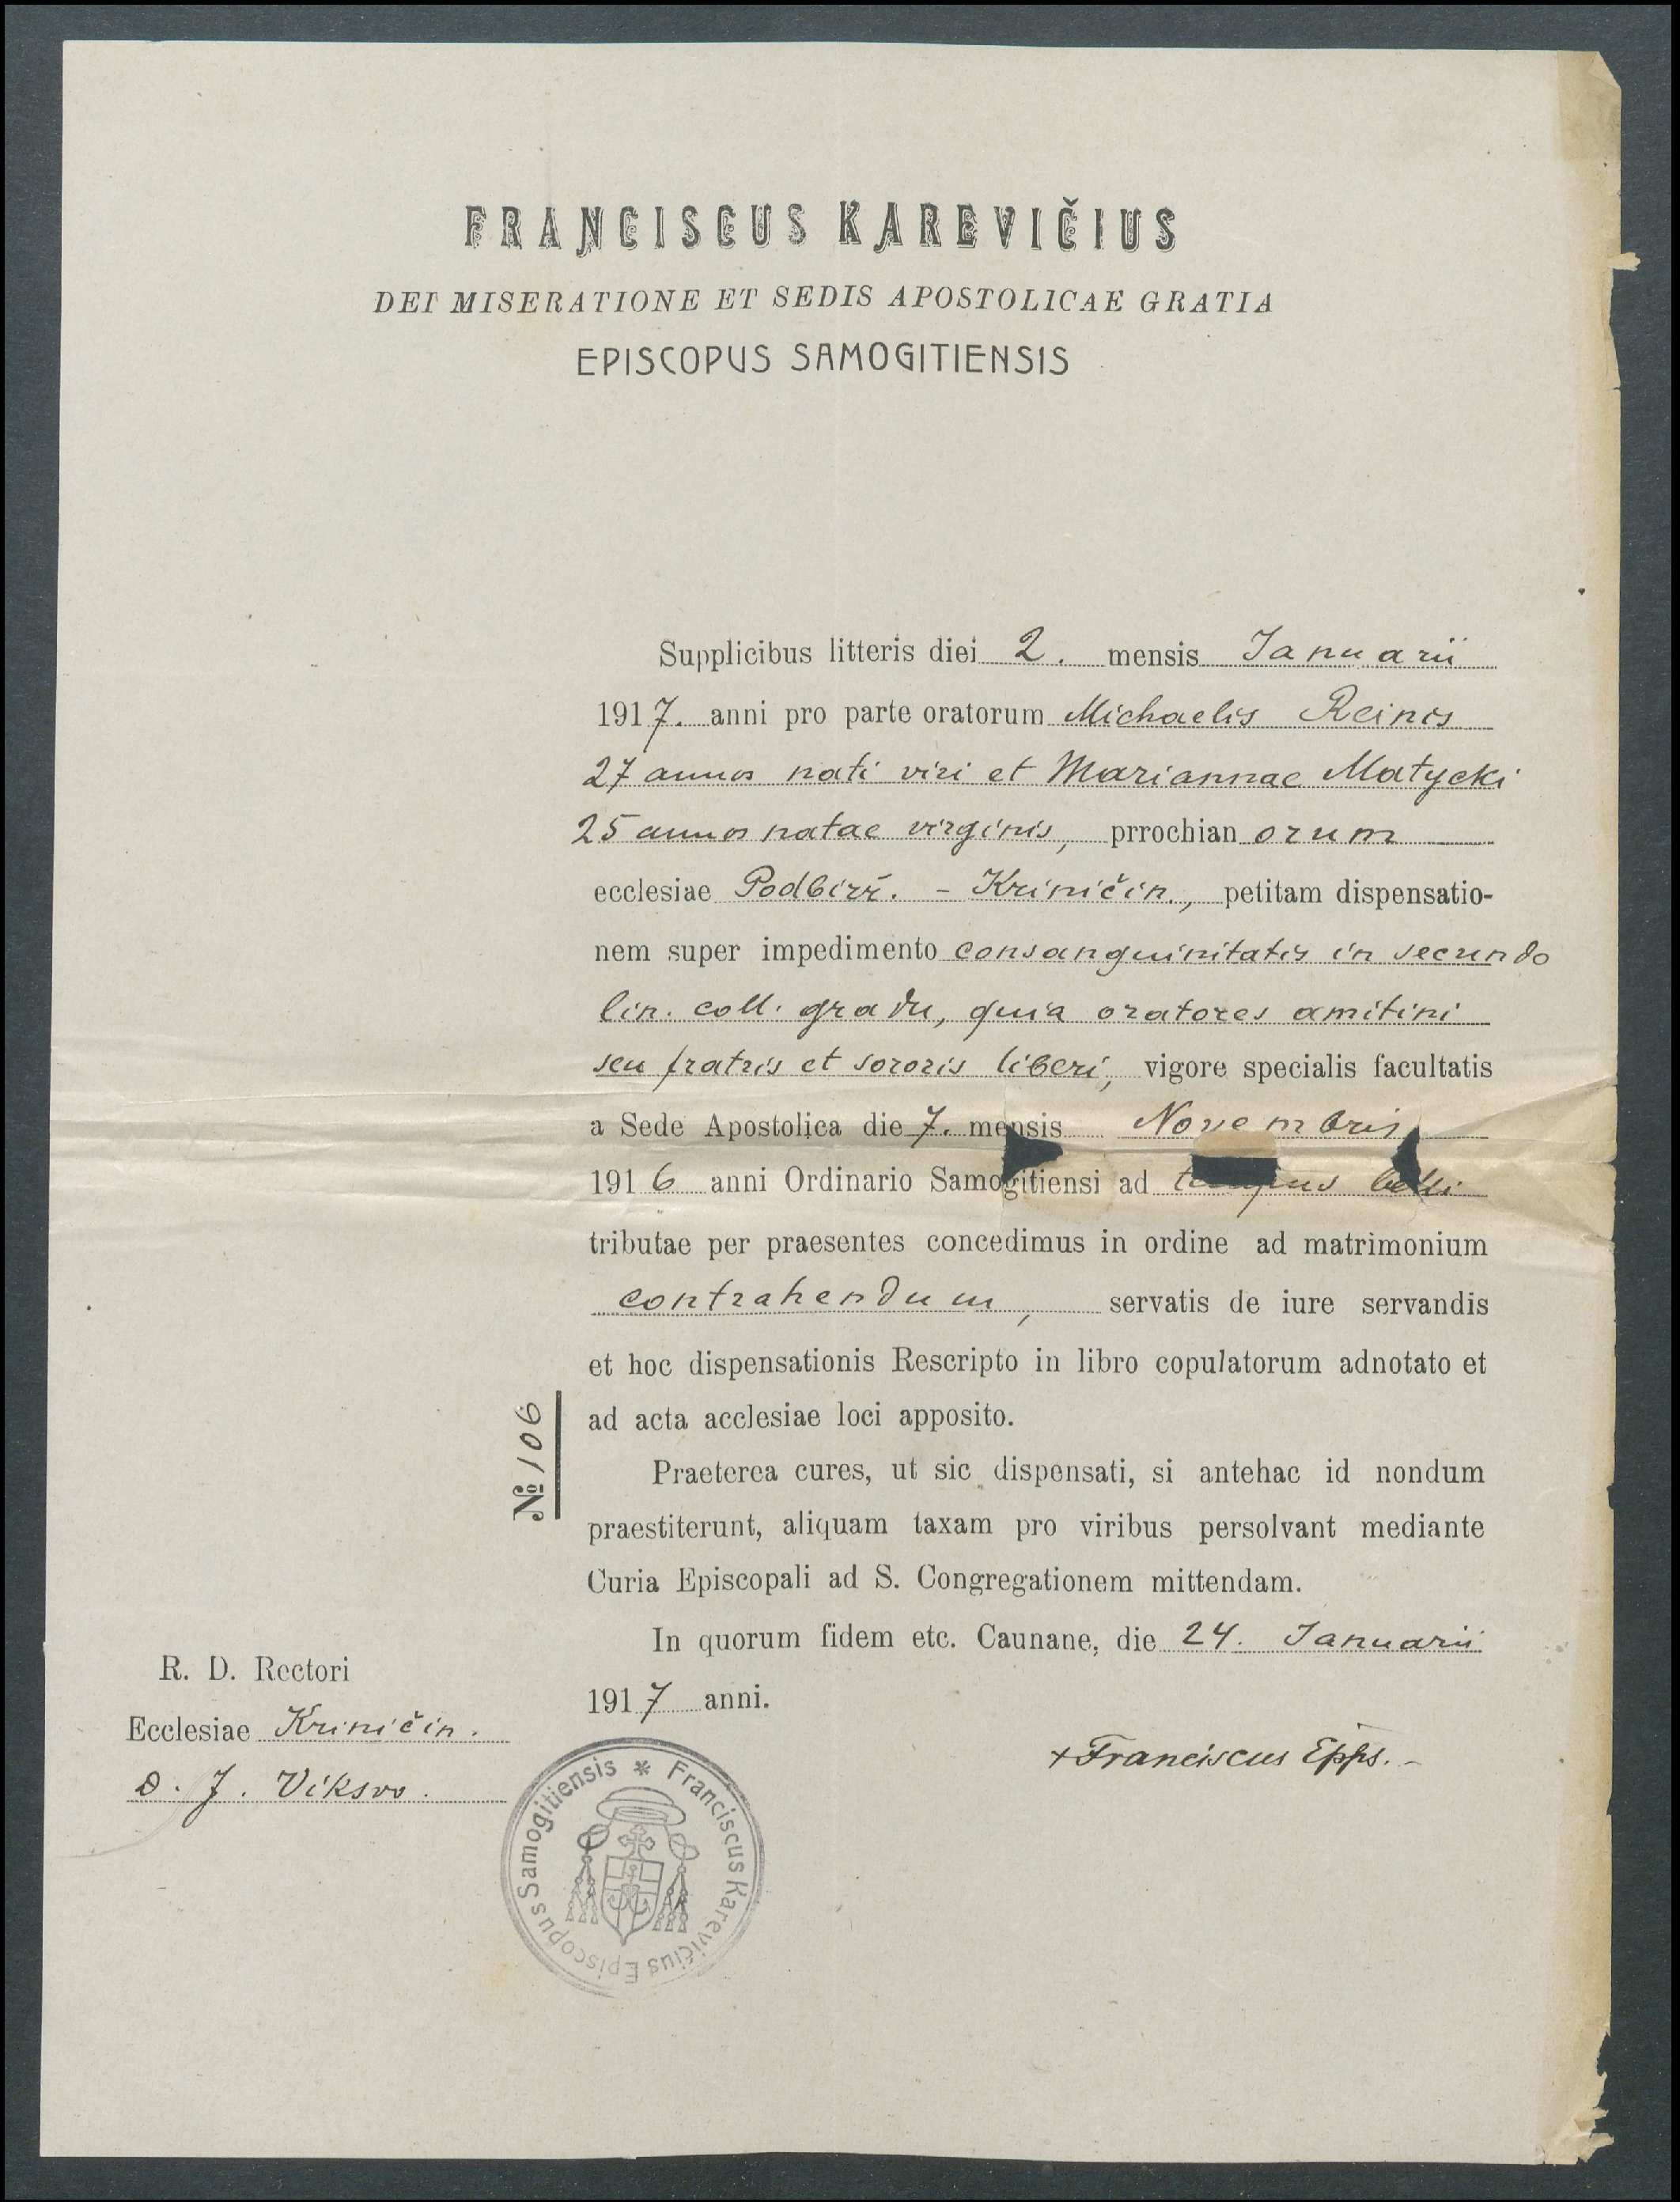 FRANCISCUS KAREVIČIUS
DEI MISERATIONE ET SEDIS APOSTOLICAE GRATIA
EPISCOPUS SAMOGITIENSIS
Supplicibus litteris diei 2. mensis Januarii
1917. anni pro parte oratorum Michaelis Reinis
27 annos nati viri et Mariannae Matycki
25 annos natae virginis, prrochian orum
ecclesiae Podbirž. - Kriničin., petitam dispensatio-
nem super impedimento consanguinitatis in secundo
lin. coll. gradu, quia oratores amitini
seu fratris et sororis liberi, vigore specialis facultatis
a Sede Apostolica die 7. mensis Novembris
1916 anni Ordinario Samogitiensi ad tempus belli
tributae per praesentes concedimus in ordine ad matrimonium
contrahendum, servatis de iure servandis
et hoc dispensationis Rescripto in libro copulatorum adnotato et
ad acta acclesiae loci apposito.
Praeterea cures, ut sic dispensati, si antehac id nondum
praestiterunt, aliquam taxam pro viribus persolvant mediante
Curia Episcopali ad S. Congregationem mittendam.
In quorum fidem etc. Caunane, die 24. Januarii
1917 anni.
№ 106
R. D. Rectori
Ecclesiae Kriničin.
D. J. Viksvo.
+Franciscus Epps.-
Franciscus Karevičius Episcopus Samogitiensis *